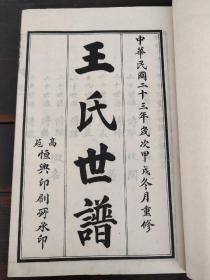 中華民國二十三年歲次甲戌冬月重修
王氏世譜
高尨恒興印刷所承印